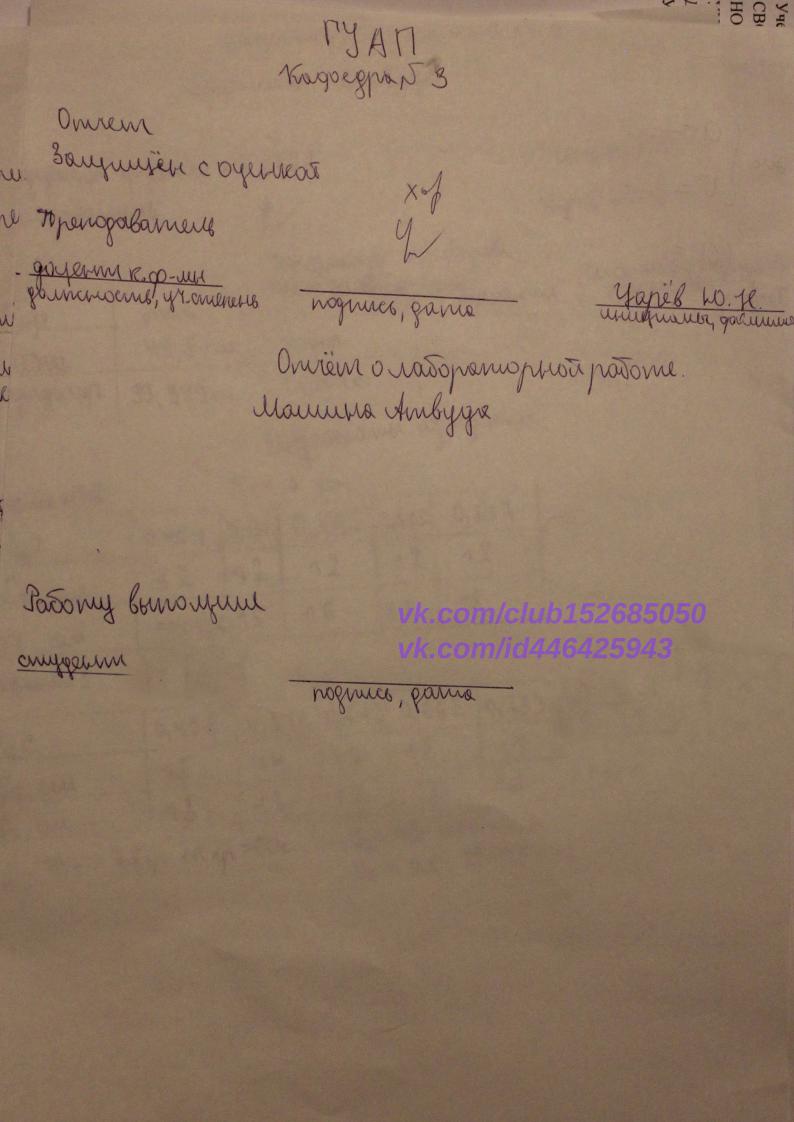 ГУАП
Кафедра № 3
Отчет
Защищён с оценкой
хор
Преподаватель
доцент к.ф-мн
должность, уч. степень
подпись, дата
Царёв Ю.Н.
инициалы, фамилия
Отчёт о лабораторной работе.
Машина Атвуда
Работу выполнил
vk.com/club152685050
vk.com/id446425943
студент
подпись, дата